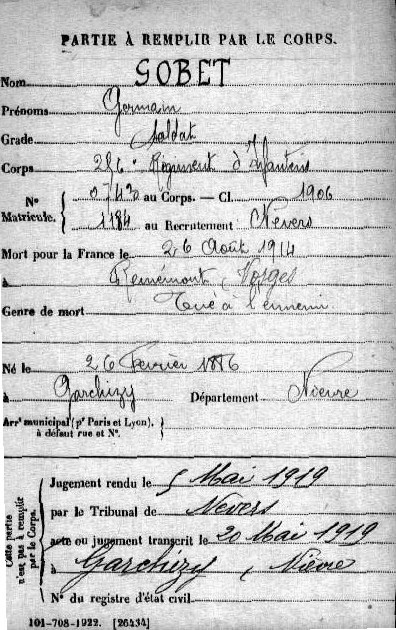 PARTIE À REMPLIR PAR LE CORPS.
Nom GOBET
Prénoms Germain
Grade Soldat
Corps 286e Régiment d'Infanterie
Nº Matricule. { 0743 au Corps. — Cl. 1906
1184 au Recrutement Nevers
Mort pour la France le 26 Août 1914
à Remémont, Vosges
Genre de mort Tué à l'ennemi
Né le 26 Février 1886
à Garchizy Département Nièvre
Arrt municipal (pr Paris et Lyon), à défaut rue et Nº. }
Cette partie n'est pas à remplir par le Corps.
Jugement rendu le 5 Mai 1919
par le Tribunal de Nevers
acte ou jugement transcrit le 20 Mai 1919
à Garchizy, Nièvre
Nº du registre d'état civil
101-708-1922. [26434]